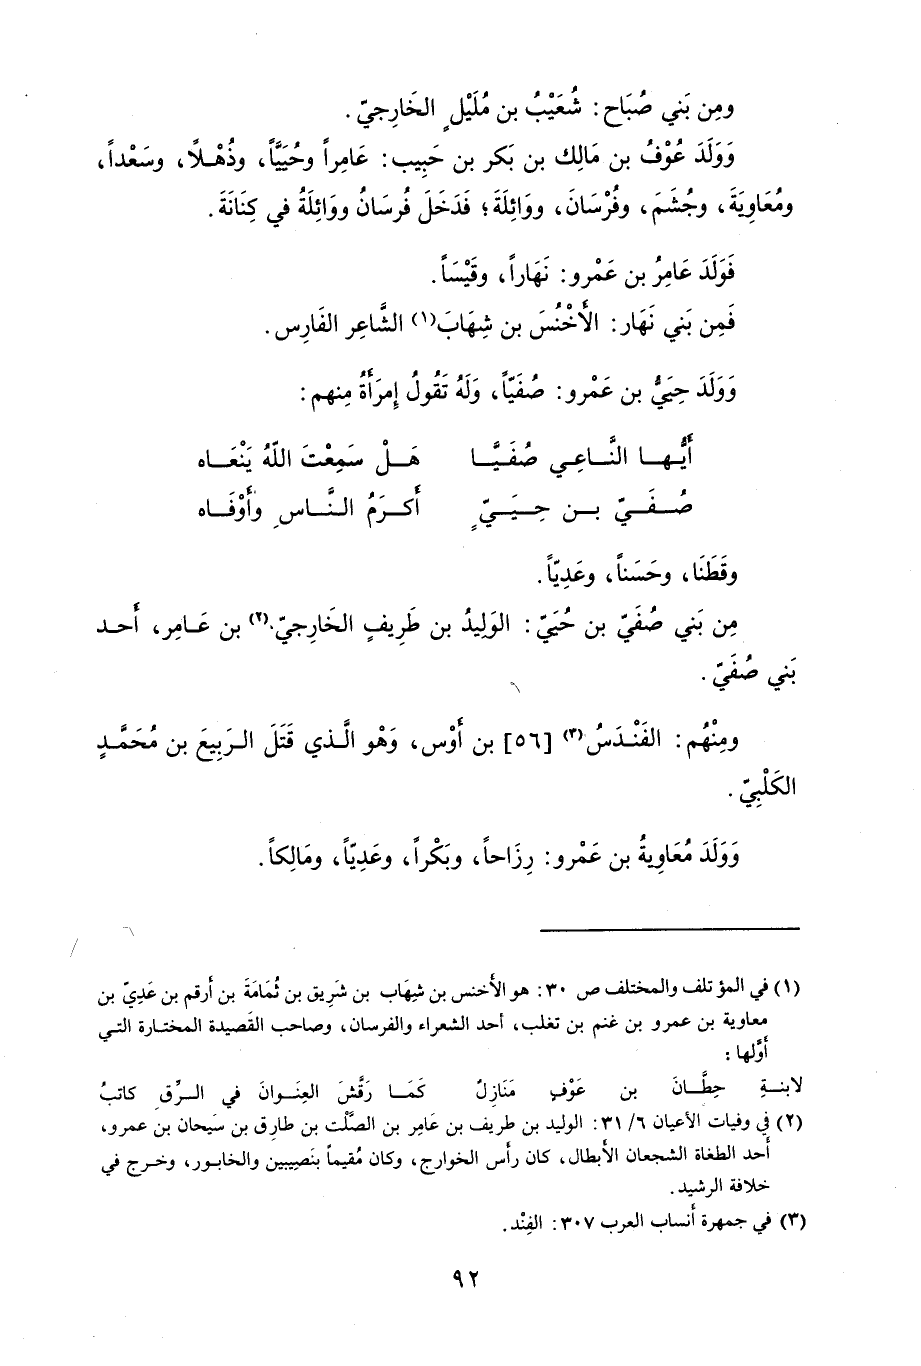 ومِن بَني صُبَاح: شُعَيْبُ بن مُلَيْلٍ الخَارِجيّ.
وَوَلَدَ عُوْفُ بن مَالِك بن بَكر بن حَبِيب: عَامِراً وحُيَيَّاً، وذُهْلاً، وسَعْداً،
ومُعَاوِيَةَ، وجُشَمَ، وفُرْسَانَ، ووَائِلَةَ؛ فَدَخَلَ فُرسَانُ ووَائِلَةُ في كِنَانَةَ.
فَوَلَدَ عَامِرُ بن عَمْرو: نَهَاراً، وقَيْسَاً.
فَمِن بَني نَهَار: الأَخْنُسَ بن شِهَابَ(١) الشَّاعِر الفَارِس.
وَوَلَدَ حِيَيُّ بن عَمْرو: صُفَيّاً، وَلَهُ تَقُولُ إمرَأَةُ مِنهم:
أَيُّهـا النَّـاعِـي صُفَيَّـا هَـلْ سَمِعْتَ اللّهُ يَنْعَـاه
صُـفَـيّ بـن حِـيَـيّ ٍ أكـرَمُ النَّـاسِ وأَوْفَـاه
وقَطَنَا، وحَسَناً، وعَدِيّاً.
مِن بَني صُفَيّ بن حُيَيّ: الوَلِيدُ بن طَرِيفٍ الخَارِجيّ.(٢) بن عَـامِر، أَحـد
بَني صُفَيّ.
ومِنْهُم: الفَنْدَسُ(٣) [٥٦] بن أَوْس، وَهْو الَّذي قَتَلَ الـرَبِيعَ بن مُحَمَّدٍ
الكَلْبِيّ.
وَوَلَدَ مُعَاوِيةُ بن عَمْرو: رِزَاحاً، وبَكْراً، وعَدِيّاً، ومَالِكاً.
(١) في المؤتلف والمختلف ص ٣٠: هو الأخنس بن شِهَاب بن شَرِيق بن ثُمَامَةَ بن أرقم بن عَدِيّ بن
معاوية بن عمرو بن غنم بن تغلب، أحد الشعراء والفرسان، وصاحب القصيدة المختارة التـي
أوَّلها:
لابنـةِ حِطَّـانَ بن عَوْفٍ مَنَازِلٌ كَمَـا رَقَّشَ العِنـوانَ في الـرِّقِ كاتبُ
(٢) في وفيات الأعيان ٦/ ٣١: الوليد بن طريف بن عَامِر بن الصَّلْت بن طارِق بن سَيحان بن عمرو،
أحد الطغاة الشجعان الأبطال، كان رأس الخوارج، وكان مُقيماً بنَصِيبين والخابور، وخرج في
خلافة الرشيد.
(٣) في جمهرة أنساب العرب ٣٠٧: الفِنْد.
٩٢